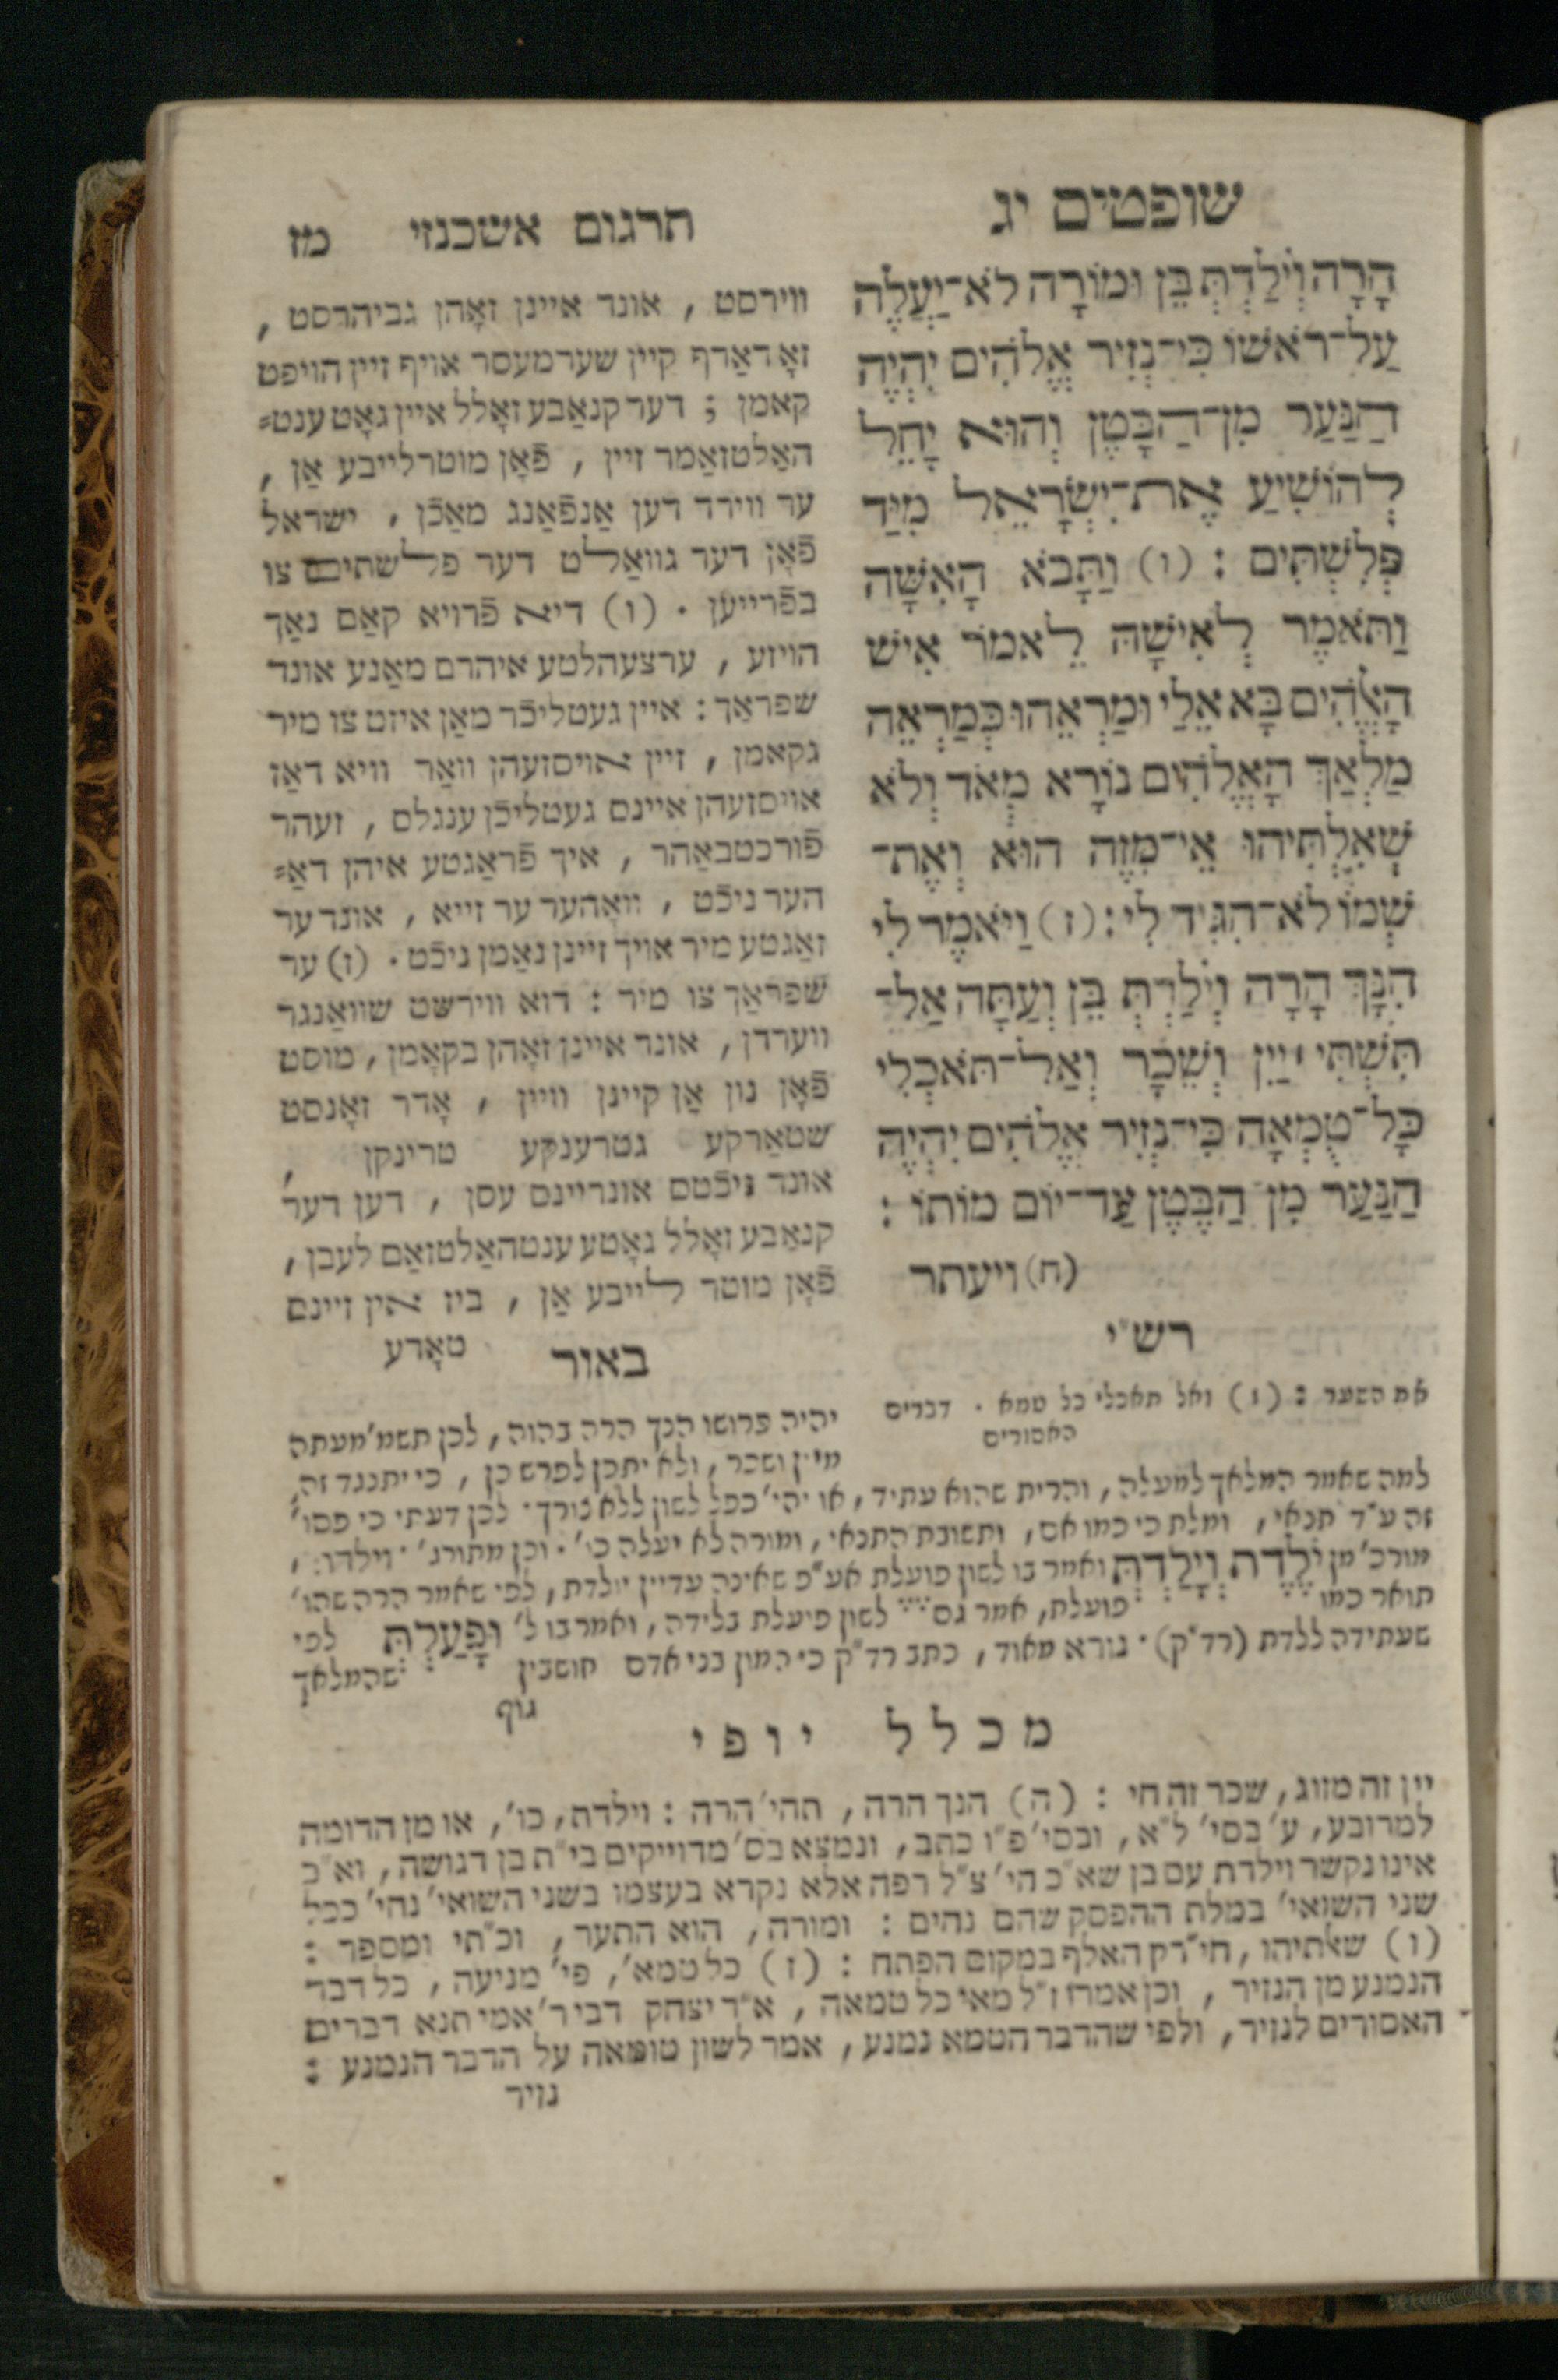 שופטים יג
הָרָה וְיֹלַדְתְּ בֵּן וּמוֹרָה לֹא־יַעֲלֶה
עַל־רֹאשׁוֹ כִּי־נְזִיר אֱלֹהִים יִהְיֶה
הַנַּעַר מִן־הַבָּטֶן וְהוּא יָחֵל
לְהוֹשִׁיעַ אֶת־יִשְׂרָאֵל מִיַּד
פְּלִשְׁתִּים : (ו) וַתָּבֹא הָאִשָּׁה
וַתֹּאמֶר לְאִישָׁהּ לֵאמֹר אִישׁ
הָאֱלֹהִים בָּא אֵלַי וּמַרְאֵהוּ כְּמַרְאֵה
מַלְאַךְ הָאֱלֹהִים נוֹרָא מְאֹד וְלֹא
שְׁאִלְתִּיהוּ אֵי־מִזֶּה הוּא וְאֶת־
שְׁמוֹ לֹא־הִגִּיד לִי : (ז) וַיֹּאמֶר לִי
הִנָּךְ הָרָה וְיֹלַדְתְּ בֵּן וְעַתָּה אַל־
תִּשְׁתִּי ׀ יַיִן וְשֵׁכָר וְאַל־תֹּאכְלִי
כָּל־טֻמְאָה כִּי־נְזִיר אֱלֹהִים יִהְיֶה
הַנַּעַר מִן הַבֶּטֶן עַד־יוֹם מוֹתוֹ :
(ח) ויעתר
תרגום אשכנזי מז
ווירסט , אונד איינן זאָהן גביהרסט ,
זאָ דאַרף קיין שערמעסר אויף זיין הויפט
קאמן ; דער קנאַבע זאָלל איין גאָט ענט=
האַלטזאַמר זיין , פֿאָן מוטרלייבע אַן ,
ער ווירד דען אַנפֿאַנג מאַכֿן , ישראל
פֿאָן דער גוואַלט דער פלשתים צו
בפֿרייען . (ו) דיא פֿרויא קאַם נאַך
הויזע , ערצעהלטע איהרם מאַנע אונד
שפראַך : איין געטליכֿר מאַן איזט צו מיר
גקאמן , זיין אויסזעהן וואַר וויא דאַז
אויסזעהן איינס געטליכֿן ענגלס , זעהר
פֿורכטבאַהר , איך פֿראַגטע איהן דאַ=
הער ניכֿט , וואָהער ער זייא , אונד ער
זאַגטע מיר אויך זיינן נאַמן ניכֿט . (ז) ער
שפראַך צו מיר : דוא ווירשט שוואַנגר
ווערדן , אונד איינן זאָהן בקאָמן , מוסט
פֿאָן נון אַן קיינן וויין , אָדר זאָנסט
שטאַרקע גטרענקע טרינקן ,
אונד ניכֿטס אונריינס עסן , דען דער
קנאַבע זאָלל גאָטע ענטהאַלטזאַם לעבן ,
פֿאָן מוטר לייבע אַן , ביז אין זיינם
טאָדע
רש״י
את השער : (ז) ואל תאכלי כל טמא . דברים
האסורים
באור
יהיה פרושו הנך הרה בהוה , לכן תשמ׳ מעתה
מיין ושכר , ולא יתכן לפרש כן , כי יתנגד זה
למה שאמר המלאך למעלה , והרית שהוא עתיד , או יהי׳ כפל לשון ללא צורך . לכן דעתי כי פסו׳
זה ע״ד תנאי , ומלת כי כמו אם , ותשובת התנאי , ומורה לא יעלה כו׳ . וכן מתורג׳ . וילדת ,
מורכ׳ מן יֹלֶדֶת וְיָלַדְתְּ ואמר בו לשון פועלת אע״פ שאינה עדיין יולדת , לפי שאמר הרה שהו׳
תואר כמו פועלת , אמר גם לשון פיעלת בלידה , ואמר בו ל׳ וּפָעַלְתְּ לפי
שעתידה ללדת (רד״ק) . נורא מאוד , כתב רד״ק כי המון בני אדם חושבין שהמלאך
גוף
מכלל יופי
יין זה מזוג , שכר זה חי : (ה) הנך הרה , תהי׳ הרה : וילדת , כו׳ , או מן הדומה
למרובע , ע׳ בסי׳ ל״א , ובסי׳ פ״ו כתב , ונמצא בס׳ מדוייקים בי״ת בן דגושה , וא״כ
אינו נקשר וילדת עם בן שא״כ הי׳ צ״ל רפה אלא נקרא בעצמו בשני השואי׳ נחי׳ ככל
שני השואי׳ במלת ההפסק שהם נחים : ומורה , הוא התער , וכ״תי ומספר :
(ו) שאלתיהו , חי״רק האלף במקום הפתח : (ז) כל טמא׳ , פי׳ מניעה , כל דבר
הנמנע מן הנזיר , וכן אמרו ז״ל מאי כל טמאה , א״ר יצחק דבי ר׳ אמי תנא דברים
האסורים לנזיר , ולפי שהדבר הטמא נמנע , אמר לשון טומאה על הדבר הנמנע :
נזיר